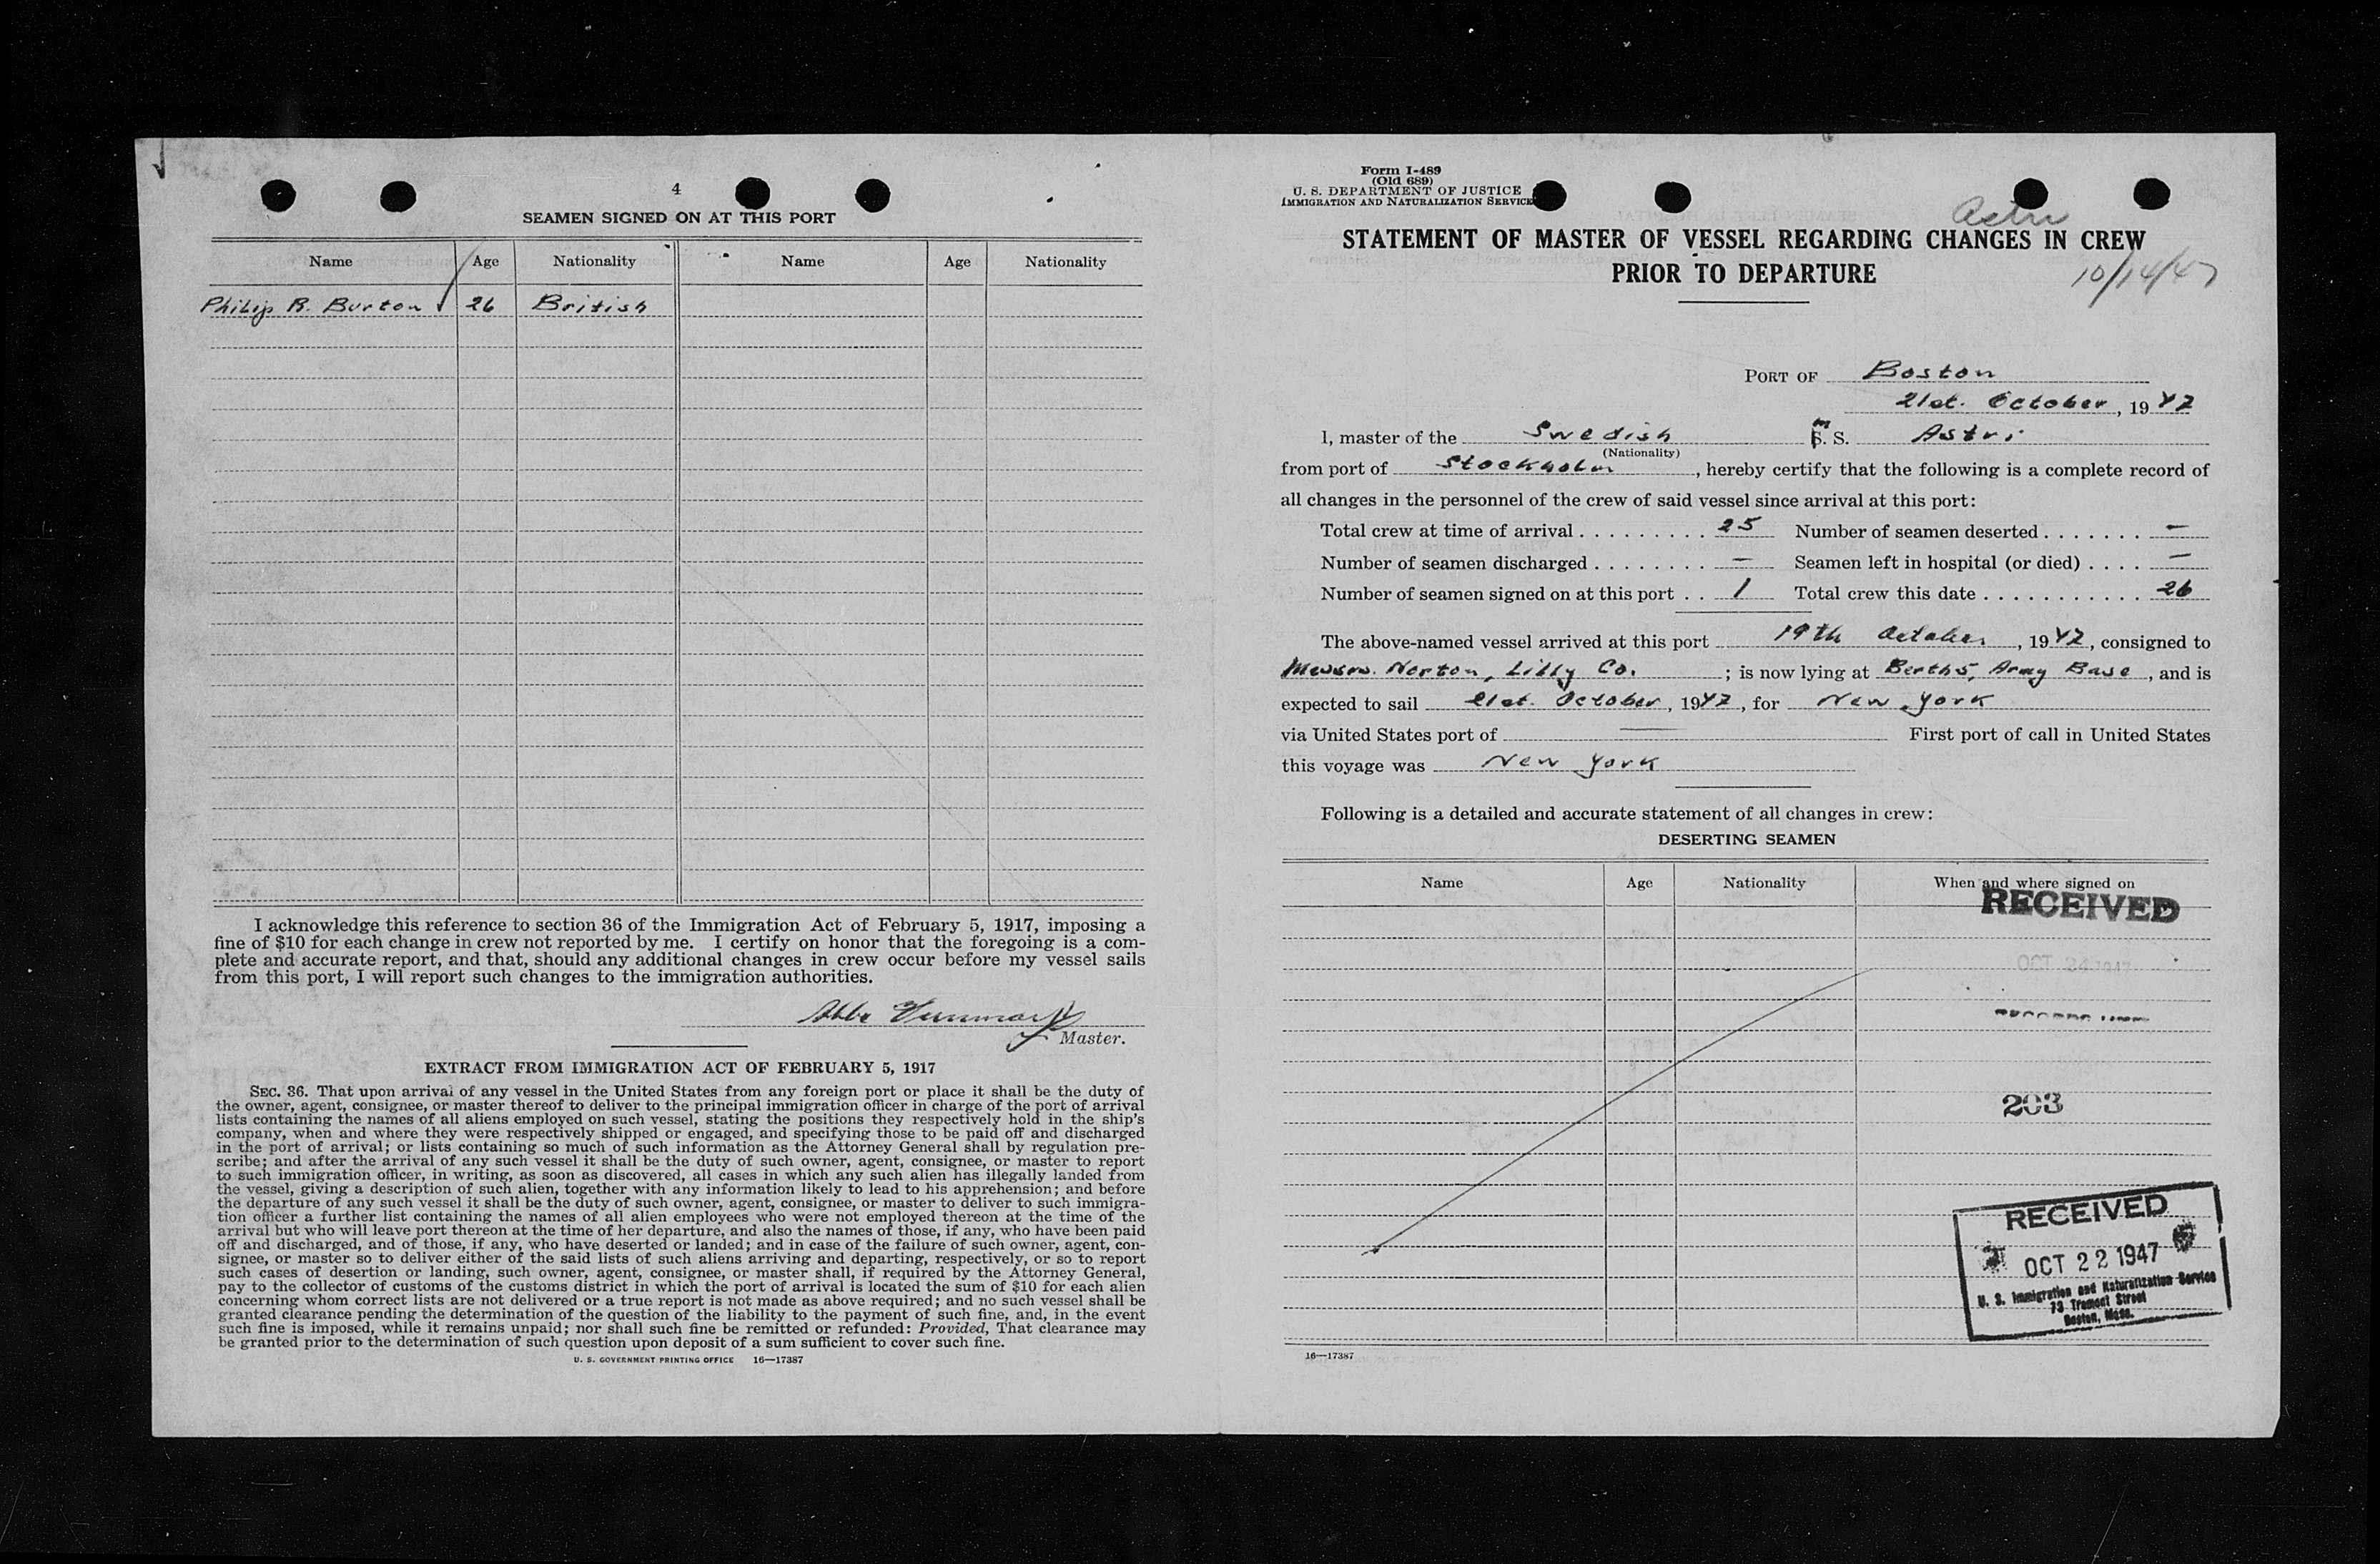 4
SEAMEN SIGNED ON AT THIS PORT
Name Age Nationality Name Age Nationality
Philip R. Burton 26 British
I acknowledge this reference to section 36 of the Immigration Act of February 5, 1917, imposing a
fine of $10 for each change in crew not reported by me. I certify on honor that the foregoing is a com-
plete and accurate report, and that, should any additional changes in crew occur before my vessel sails
from this port, I will report such changes to the immigration authorities.
Master.
EXTRACT FROM IMMIGRATION ACT OF FEBRUARY 5, 1917
SEC. 36. That upon arrival of any vessel in the United States from any foreign port or place it shall be the duty of
the owner, agent, consignee, or master thereof to deliver to the principal immigration officer in charge of the port of arrival
lists containing the names of all aliens employed on such vessel, stating the positions they respectively hold in the ship's
company, when and where they were respectively shipped or engaged, and specifying those to be paid off and discharged
in the port of arrival; or lists containing so much of such information as the Attorney General shall by regulation pre-
scribe; and after the arrival of any such vessel it shall be the duty of such owner, agent, consignee, or master to report
to such immigration officer, in writing, as soon as discovered, all cases in which any such alien has illegally landed from
the vessel, giving a description of such alien, together with any information likely to lead to his apprehension; and before
the departure of any such vessel it shall be the duty of such owner, agent, consignee, or master to deliver to such immigra-
tion officer a further list containing the names of all alien employees who were not employed thereon at the time of the
arrival but who will leave port thereon at the time of her departure, and also the names of those, if any, who have been paid
off and discharged, and of those, if any, who have deserted or landed; and in case of the failure of such owner, agent, con-
signee, or master so to deliver either of the said lists of such aliens arriving and departing, respectively, or so to report
such cases of desertion or landing, such owner, agent, consignee, or master shall, if required by the Attorney General,
pay to the collector of customs of the customs district in which the port of arrival is located the sum of $10 for each alien
concerning whom correct lists are not delivered or a true report is not made as above required; and no such vessel shall be
granted clearance pending the determination of the question of the liability to the payment of such fine, and, in the event
such fine is imposed, while it remains unpaid; nor shall such fine be remitted or refunded: Provided, That clearance may
be granted prior to the determination of such question upon deposit of a sum sufficient to cover such fine.
U. S. GOVERNMENT PRINTING OFFICE 16—17387
Form I-489
(Old 689)
U. S. DEPARTMENT OF JUSTICE
IMMIGRATION AND NATURALIZATION SERVICE
Astri
STATEMENT OF MASTER OF VESSEL REGARDING CHANGES IN CREW
PRIOR TO DEPARTURE
10/14/47
PORT OF Boston
21st. October, 1947
I, master of the Swedish M S. S. Astri
(Nationality)
from port of Stockholm, hereby certify that the following is a complete record of
all changes in the personnel of the crew of said vessel since arrival at this port:
Total crew at time of arrival . . . . . . . . . 25 Number of seamen deserted . . . . . . . —
Number of seamen discharged . . . . . . . . — Seamen left in hospital (or died) . . . . —
Number of seamen signed on at this port . . 1 Total crew this date . . . . . . . . . . . 26
The above-named vessel arrived at this port 19th October, 1947, consigned to
Messrs. Norton, Lilly Co. ; is now lying at Berth 5, Army Base, and is
expected to sail 21st. October, 1947, for New York
via United States port of — First port of call in United States
this voyage was New York
Following is a detailed and accurate statement of all changes in crew:
DESERTING SEAMEN
Name Age Nationality When and where signed on
RECEIVED
OCT 24 1947
203
RECEIVED
OCT 22 1947
U. S. Immigration and Naturalization Service
73 Tremont Street
Boston, Mass.
16—17387